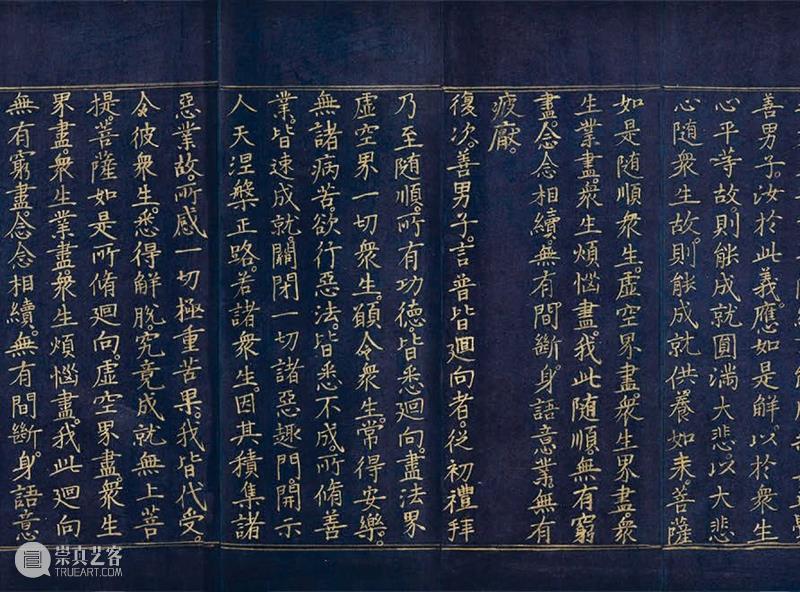 善男子。汝於此義。應如是解。以於衆生
心平等故。則能成就圓滿大悲。以大悲
心随衆生故。則能成就供養如来。菩薩
如是随順衆生。虛空界盡。衆生界盡。衆
生業盡。衆生煩惱盡。我此随順。無有窮
盡。念念相續。無有間斷。身語意業。無有
疲厭。
復次。善男子。言普皆廻向者。從初禮拜
乃至随順。所有功德。皆悉廻向。盡法界
虛空界一切衆生。願令衆生。常得安樂。
無諸病苦。欲行惡法。皆悉不成。所脩善
業。皆速成就。關閉一切諸惡趣門。開示
人天涅槃正路。若諸衆生。因其積集諸
惡業故。所感一切極重苦果。我皆代受。
令彼衆生。悉得解脫。究竟成就無上菩
提。菩薩如是所脩廻向。虛空界盡。衆生
界盡。衆生業盡。衆生煩惱盡。我此廻向
無有窮盡。念念相續。無有間斷。身語意
崇真艺客
TRUEART.COM